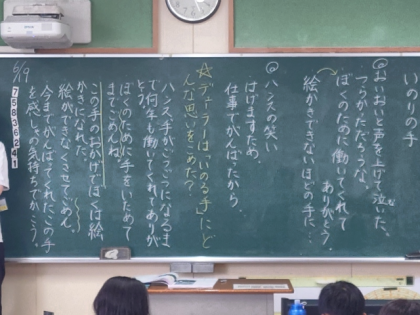 いのりの手
◎おいおいと声を上げて泣いた。
つらかただろうな
ぼくのために働いてくれて
ありがとう
絵かきできないほどの手に…
◎ハンスの笑い
はげますため。
仕事でがんばたから。
☆デューラーは「いのる手」にど
んな思いをこめた?
ハンス、手がごつごつになるま
で何年も働いてくれてありが
とう。
ぼくのために手をいためて
までごめんね。
この手のおかげでぼくは絵
かきになれた。
絵ができなくさせてごめん。
今までがんばてくれたこの手
を感しゃの気持ちでかこう。
9/9